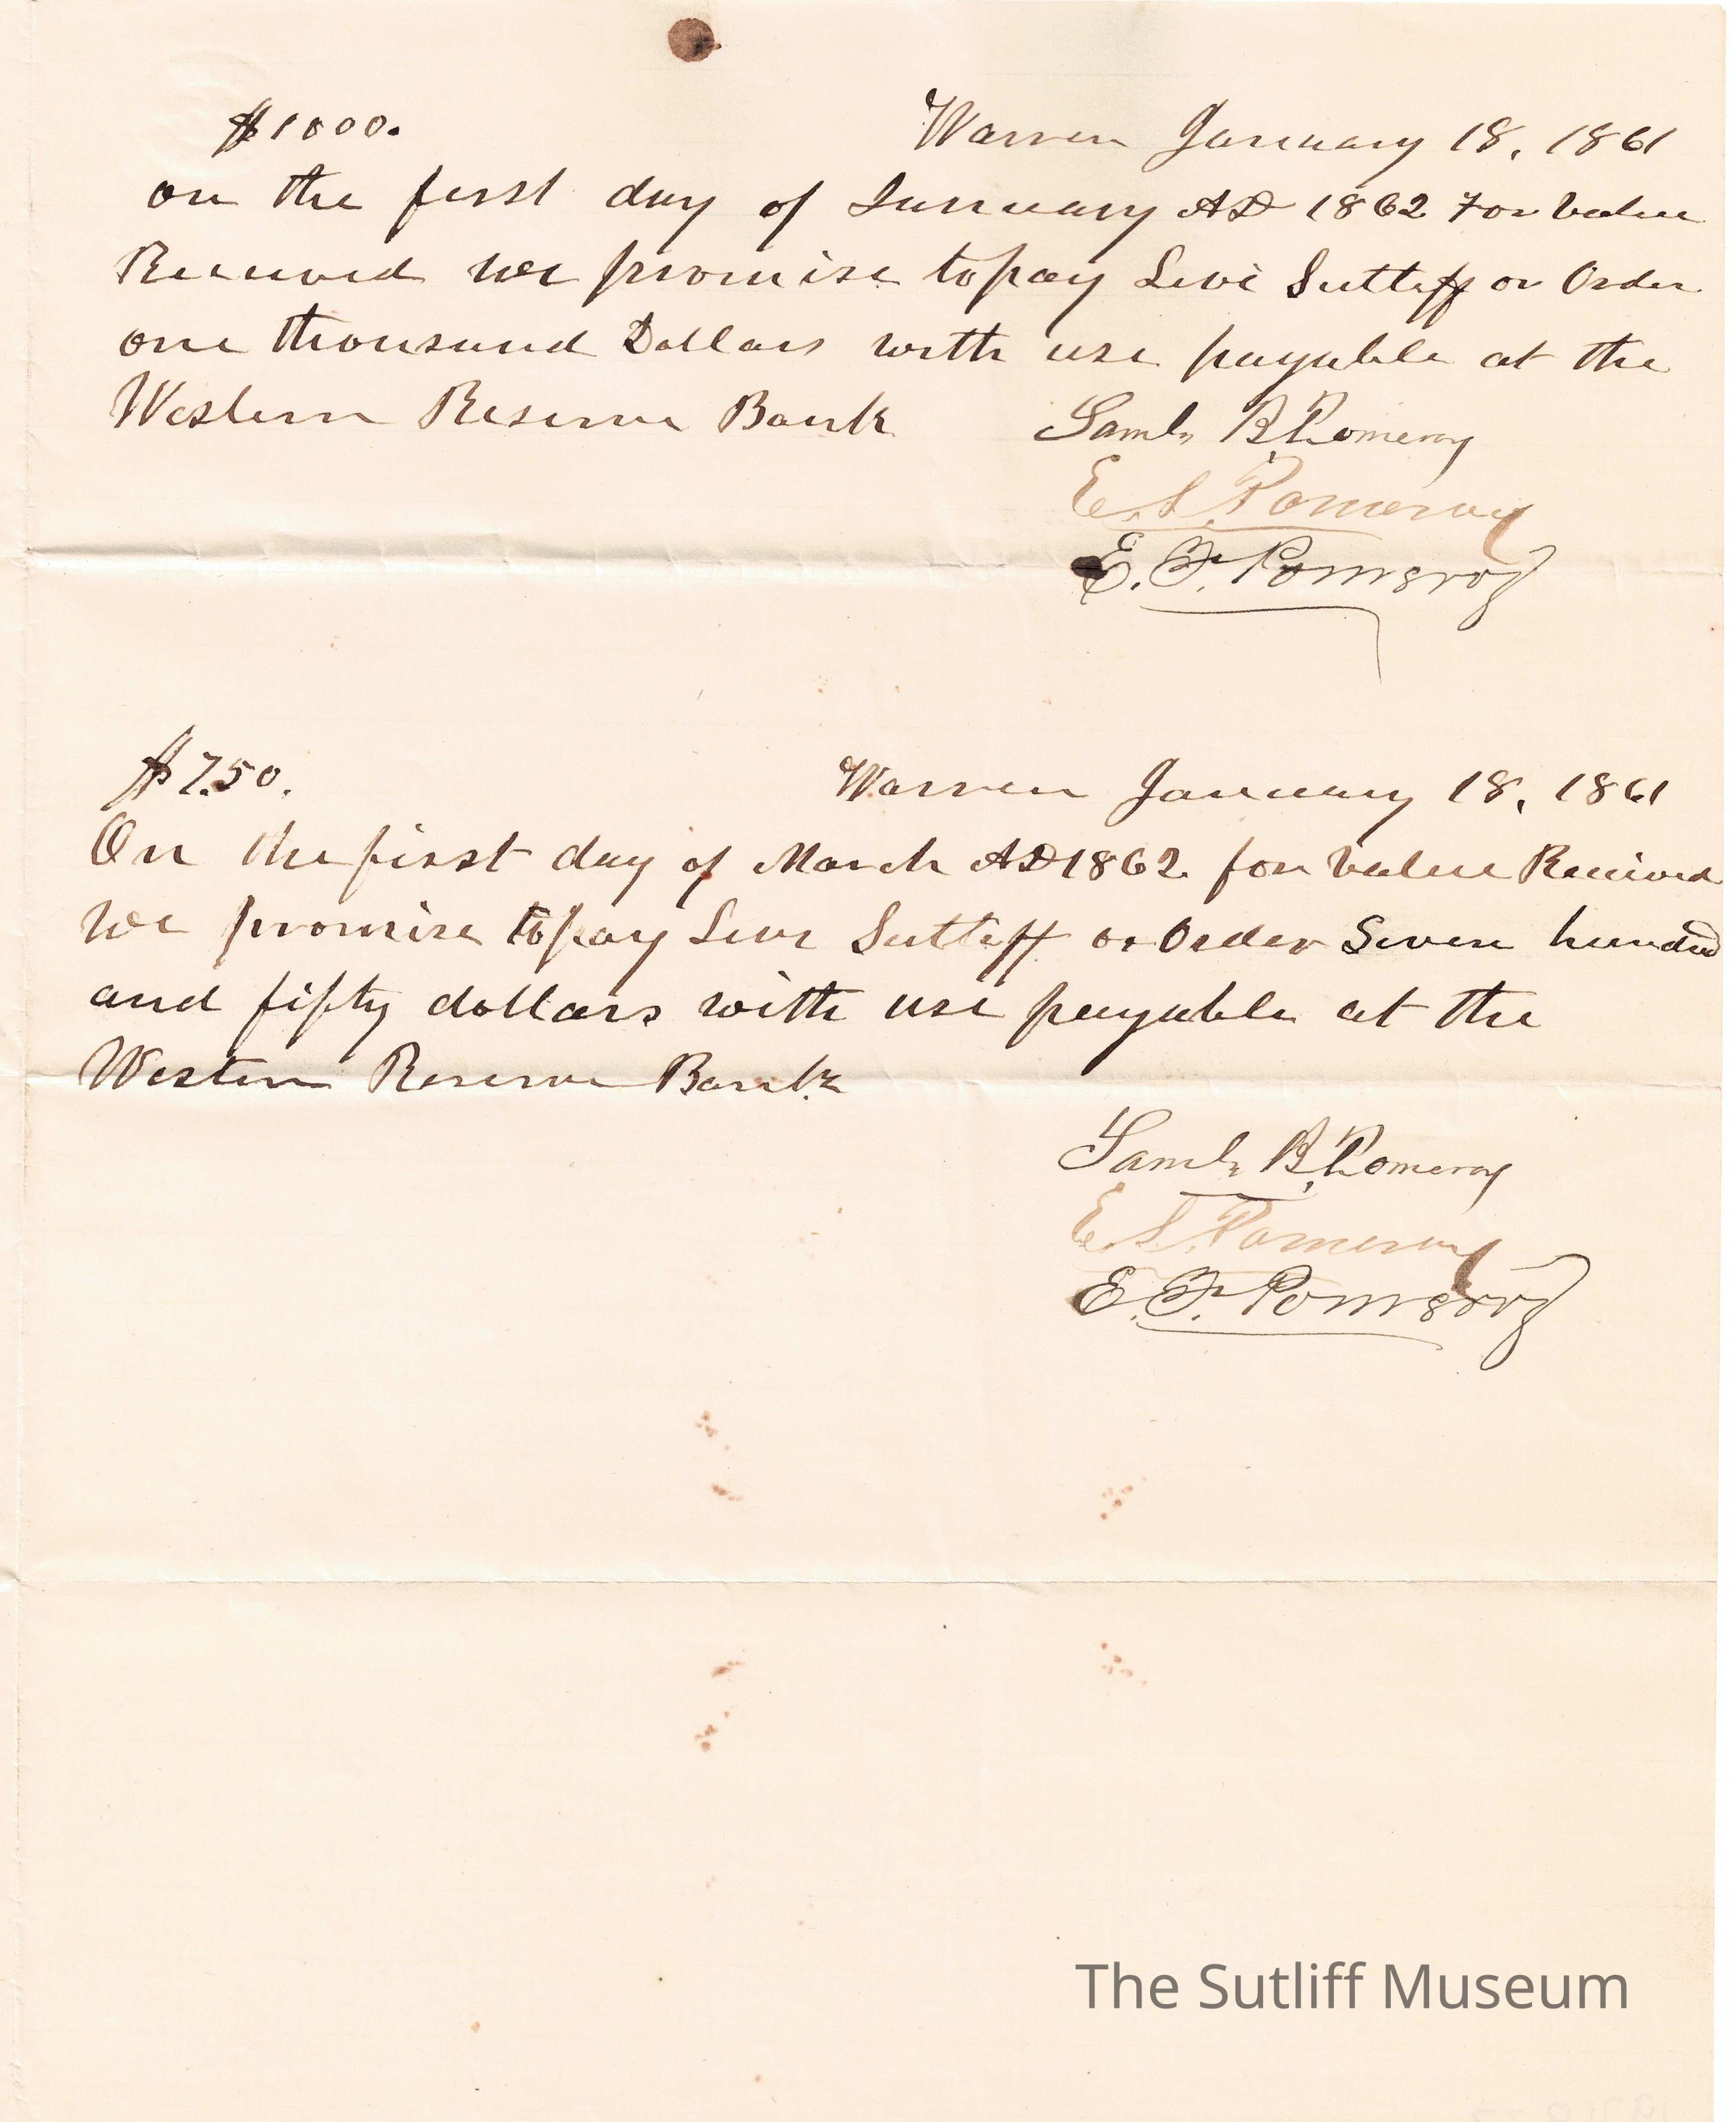 $1000. Warren January 18, 1861
on the first day of January AD 1862 For value
Received we promise to pay Levi Sutleff or Order
one thousand Dollars with use payable at the
Western Reserve Bank Saml. B. Pomeroy
E. S. Pomeroy
E. F. Pomeroy
$750. Warren January 18, 1861
On the first day of March AD 1862 for value Received
we promise to pay Levi Sutleff or Order Seven hundred
and fifty dollars with use payable at the
Western Reserve Bank
Saml. B. Pomeroy
E. S. Pomeroy
E. F. Pomeroy
The Sutliff Museum